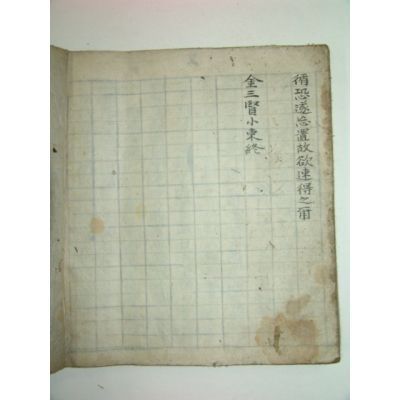 循恐遂忘置故欲速得之爾
金三賢小柬終